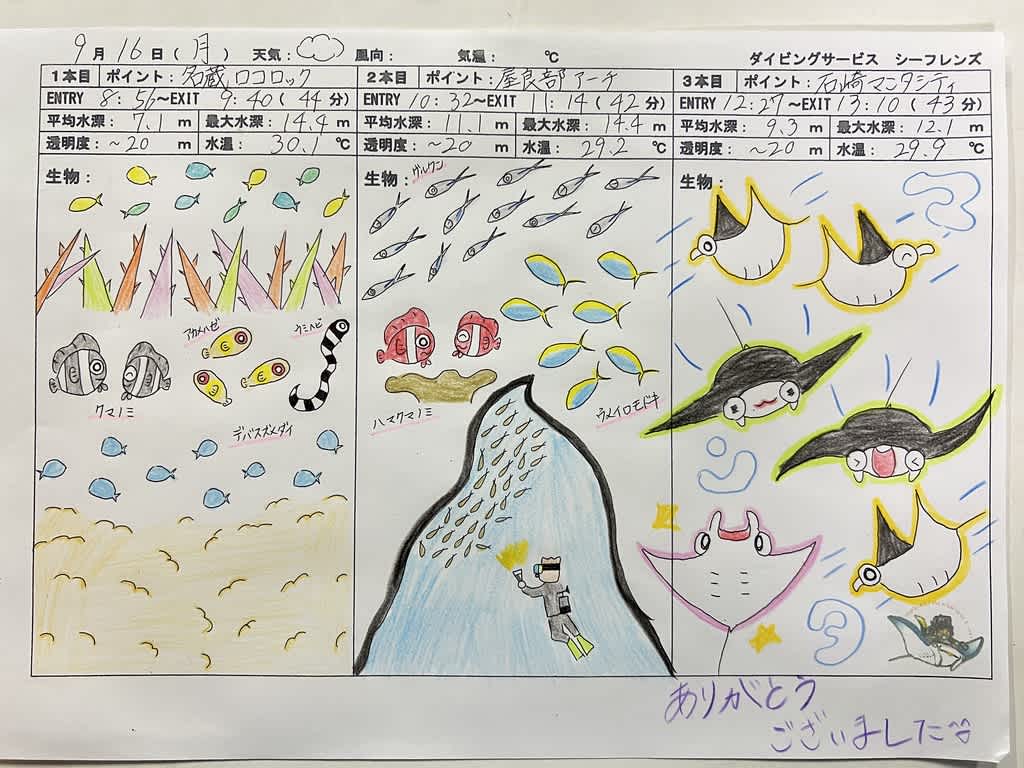 9月16日(月) 天気: 風向: 気温: ℃
ダイビングサービス シーフレンズ
1本目 ポイント: 名蔵ロコロック
ENTRY 8:56~EXIT 9:40(44分)
平均水深: 7.1 m 最大水深: 14.4 m
透明度: ~20 m 水温: 30.1 ℃
生物:
アカメハゼ
ウミヘビ
クマノミ
デバスズメダイ
2本目 ポイント: 屋良部アーチ
ENTRY 10:32~EXIT 11:14(42分)
平均水深: 11.1 m 最大水深: 14.4 m
透明度: ~20 m 水温: 29.2 ℃
生物:
グルクン
ハマクマノミ
ウメイロモドキ
3本目 ポイント: 石崎マンタシティ
ENTRY 12:27~EXIT 13:10(43分)
平均水深: 9.3 m 最大水深: 12.1 m
透明度: ~20 m 水温: 29.9 ℃
生物:
マ
ン
タ
ありがとう
ございました^^